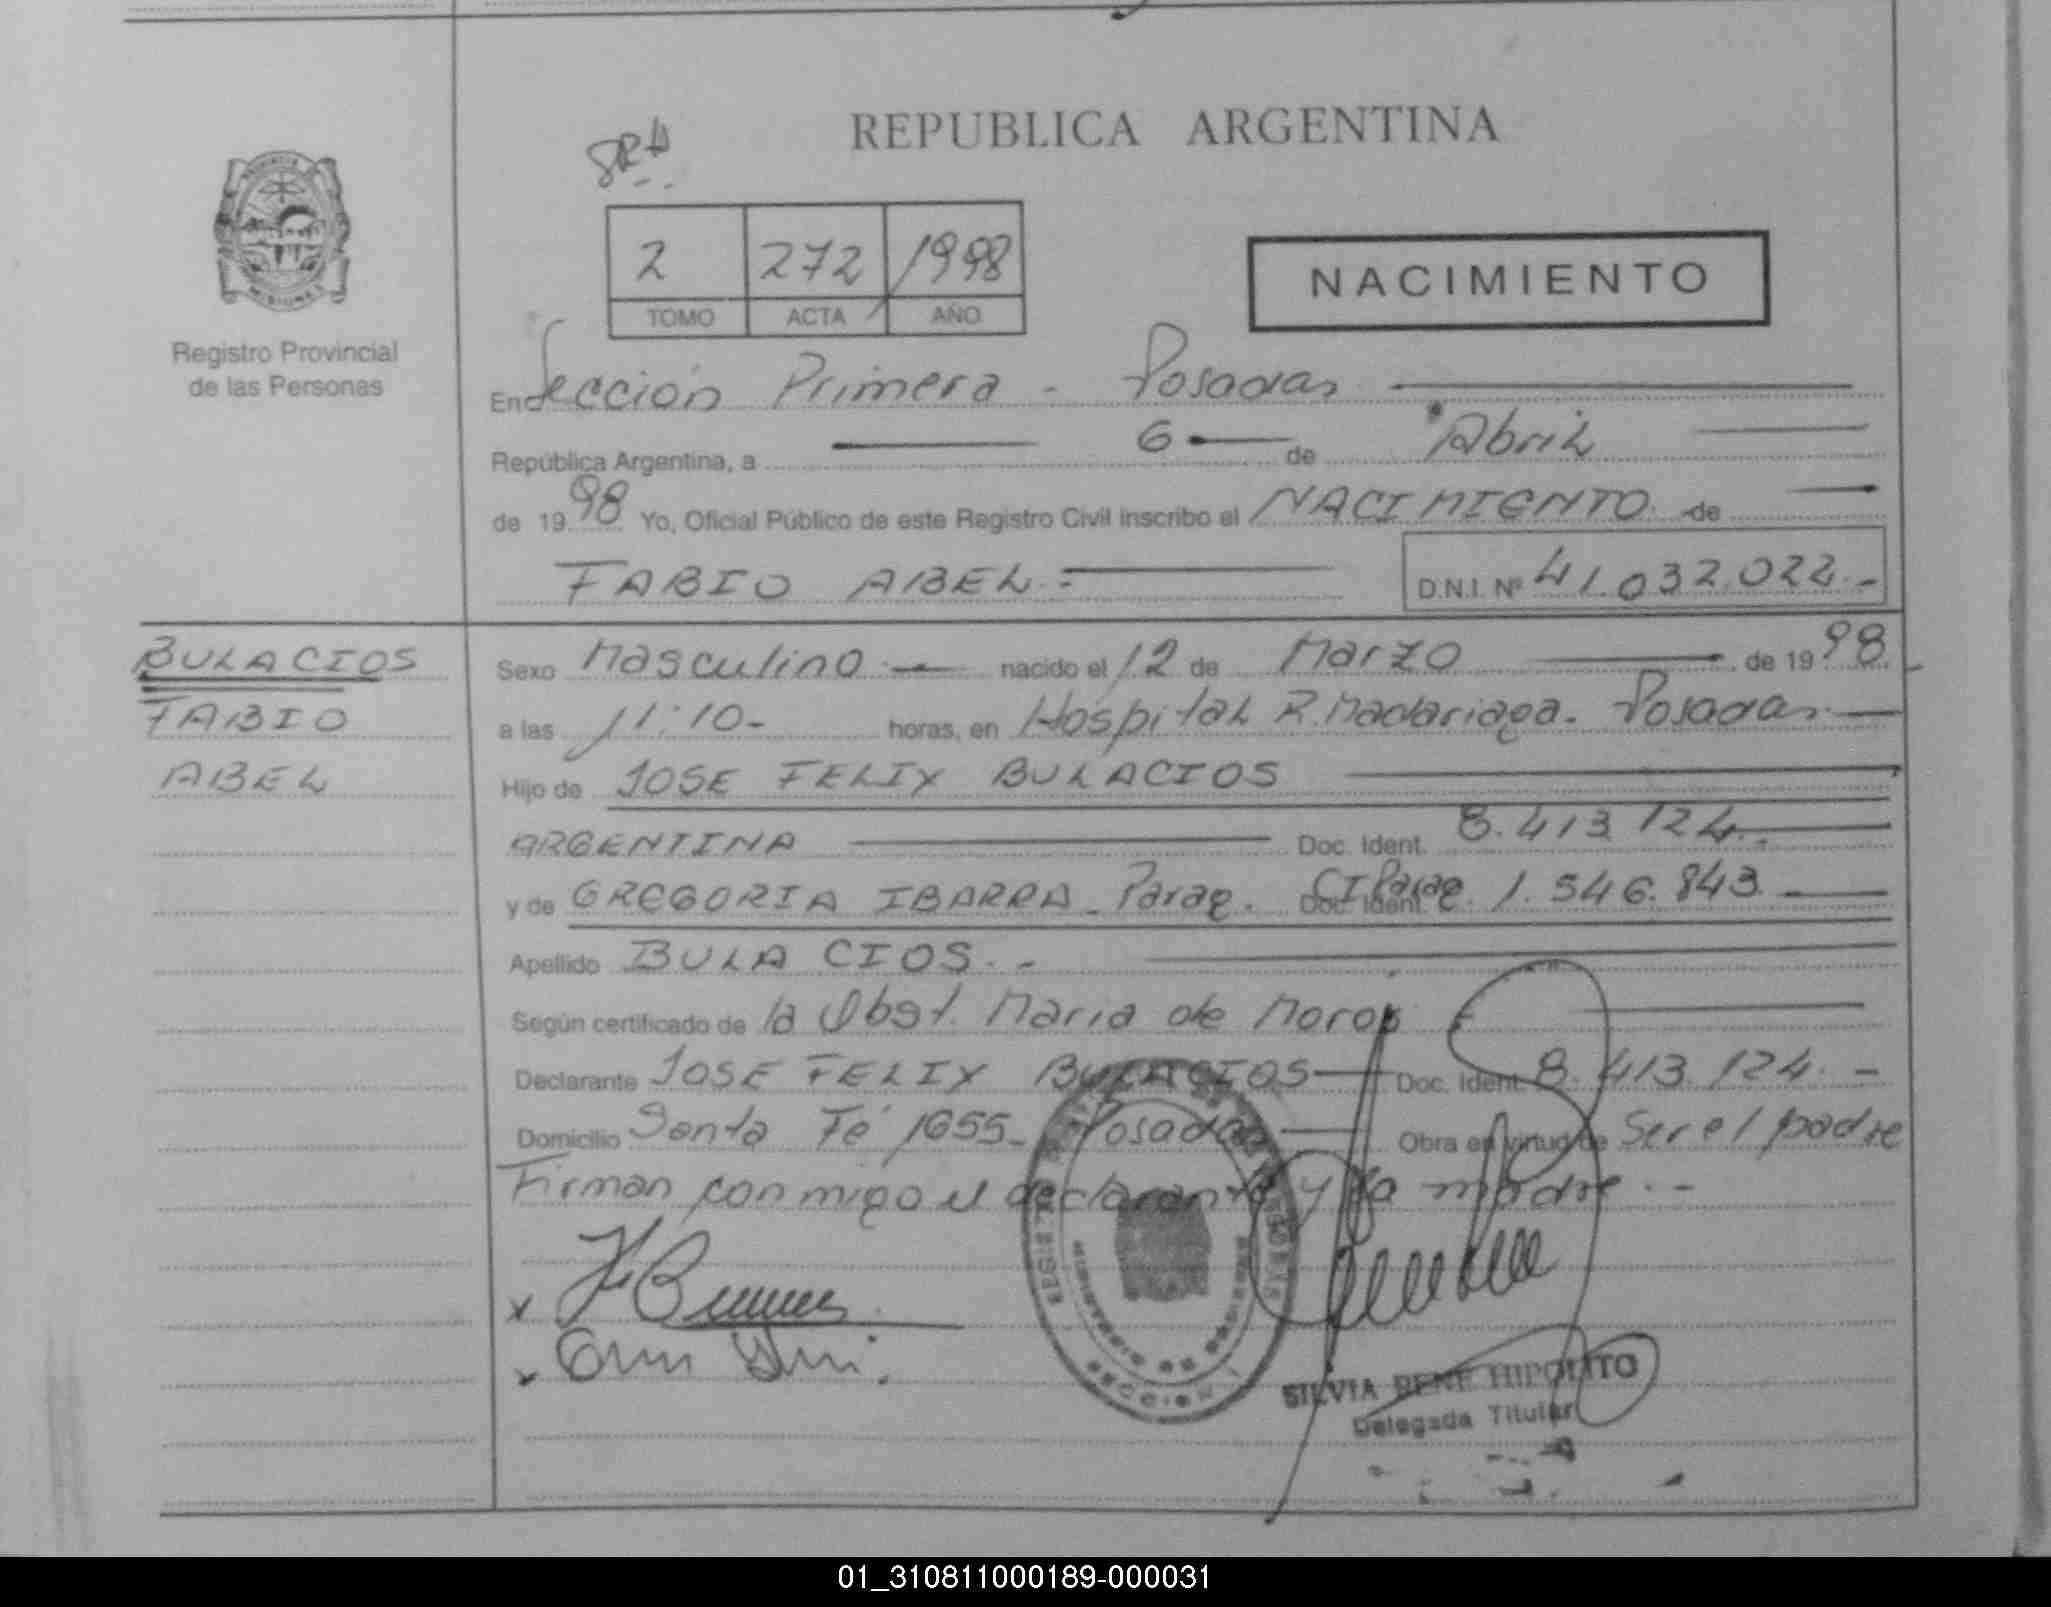 REPUBLICA ARGENTINA
2 272 1998
TOMO ACTA AÑO
NACIMIENTO
Registro Provincial
de las Personas
En Sección Primera - Posadas
República Argentina, a 6 de Abril
de 1998 Yo, Oficial Público de este Registro Civil inscribo el NACIMIENTO de
FABIO ABEL.- D.N.I. Nº 41.032.022.-
BULACIOS
FABIO
ABEL
Sexo Masculino nacido el 12 de Marzo de 1998.
a las 11:10- horas, en Hospital R. Madariaga. Posadas
Hijo de JOSE FELIX BULACIOS
ARGENTINA Doc. Ident. 8.413.124.-
y de GREGORIA IBARRA - Parag. Doc. Ident. CI Parag. 1.546.843.
Apellido BULACIOS.-
Según certificado de la Obst. Maria de
Declarante JOSE FELIX BULACIOS Doc. Ident. 8.413.124.-
Domicilio Santa Fé 1655- Posadas Obra en virtud de Ser el padre
Firman conmigo el declarante y la madre.-
SILVIA RENE HIPOLITO
Delegada Titular
01_310811000189-000031